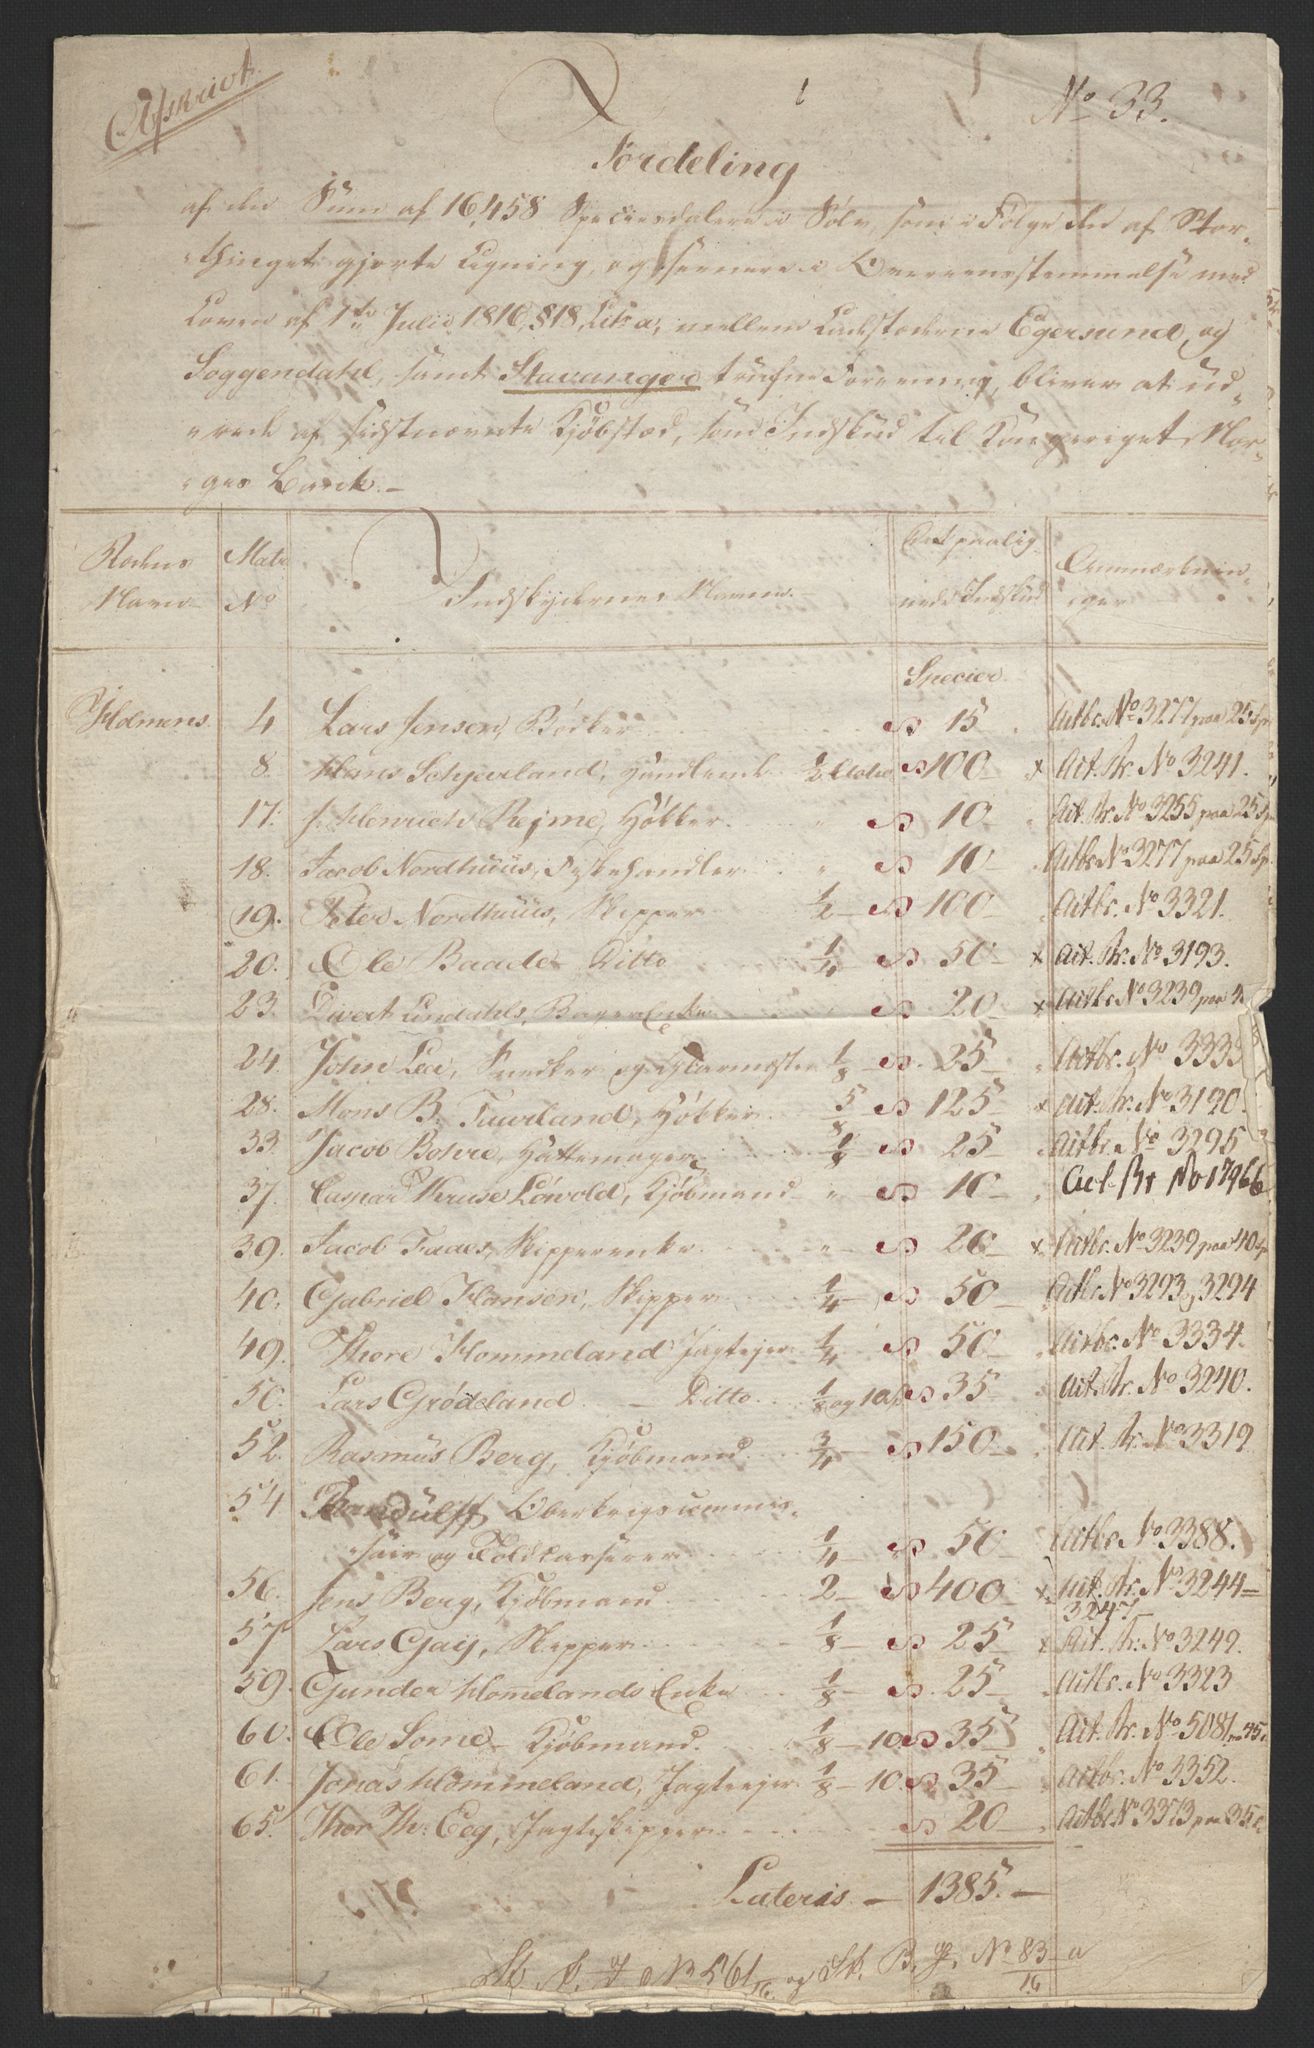 Afskrivt.
1
No 33.
Fordeling
af den Sum af 16,458 Speciesdalere i Sølv, som i Følge den af Stor-
thinget gjorte Ligning, og seenere i Overeensstemmelse med
Loven af 1te Julii 1816, §18, Litr a, mellem Ladestæderne Egersund, og
Soggendahl, samt Stavanger trufne Forening, bliver at ud-
rede af sidstnævnte Kjøbstæd, som Indskud til Kongeriget Nor-
ges Bank.
Rodens Navn
Matr No
Indskydernes Navne.
Det paalig-
nede Indskud
Anmærknin-
ger
Specier.
Holmens 4 Lars Jensen, Bødker 15 Actbr. No 3277 paa 25 Sp
8. Hans Schjerland, Handlende 1/2 Actie 100 x Act. Br. No 3241.
17. J. Henrich Rejme, Høkker. " 10 Act. Br. No 3255 paa 25 Sp
18. Jacob Nordhuus, Fiskehandler " 10 Actbr No 3277 paa 25 Sp.
19. Peter Nordhuus, Skipper 1/2 100 Actbr. No 3321.
20. Ole Baade Ditto 1/4 50 x Act. Br. No 3193.
23. Sivert Lindahls, Bager Enke 20 x Actbr No 3239 paa 4
24. John Lee, Snedker og Glarmester 1/8 25 Actbr. No 3333
28. Mons B. Tuurland, Høkker 5/8 125 x Act. Br. No 3190.
33. Jacob Bohre, Hattemager 1/8 25 Actbr. No 3295
37. Caspar Kruse Løvold, Kjøbmand " 10 Act. Br No 17966
39. Jacob Faaes, Skipperenke " 20 x Actbr. No 3239 paa 40 Sp
40. Gabriel Hansen, Skipper 1/4 50 Actbr No 3293 og 3294
49. Thore Hommeland Jagtejer 1/4 50 Actbr. No 3334.
50. Lars Grødeland Ditto 1/8 og 10 35 Act. Br. No 3240.
52. Rasmus Berg, Kjøbmand 3/4 150 Act. Br. No 3319
54 Randulff Oberkrigscommis-
sair og Toldkasserer 1/4 50 Actbr No 3388.
56. Jens Berg, Kjøbmand 2 400 x Act. Br. No 3244-
3247
57 Lars Gaij, Skipper 1/8 25 x Act. Br. No 3249.
59. Gunder Hommelands Enke 1/8 25 Actbr. No 3323
60. Ole Some Kjøbmand. 1/8 10 35 Act. Br. No 5081 paa 45
61. Jonas Hommeland, Jagteejer 1/8 10. 35 Actbr. No 3352.
65. Thor Th. Eeg, Jagtskipper 20 Actbr No 3373 paa 35
Lateris 1385.
No 561/16. og Sk. B. J. No 83/16 a